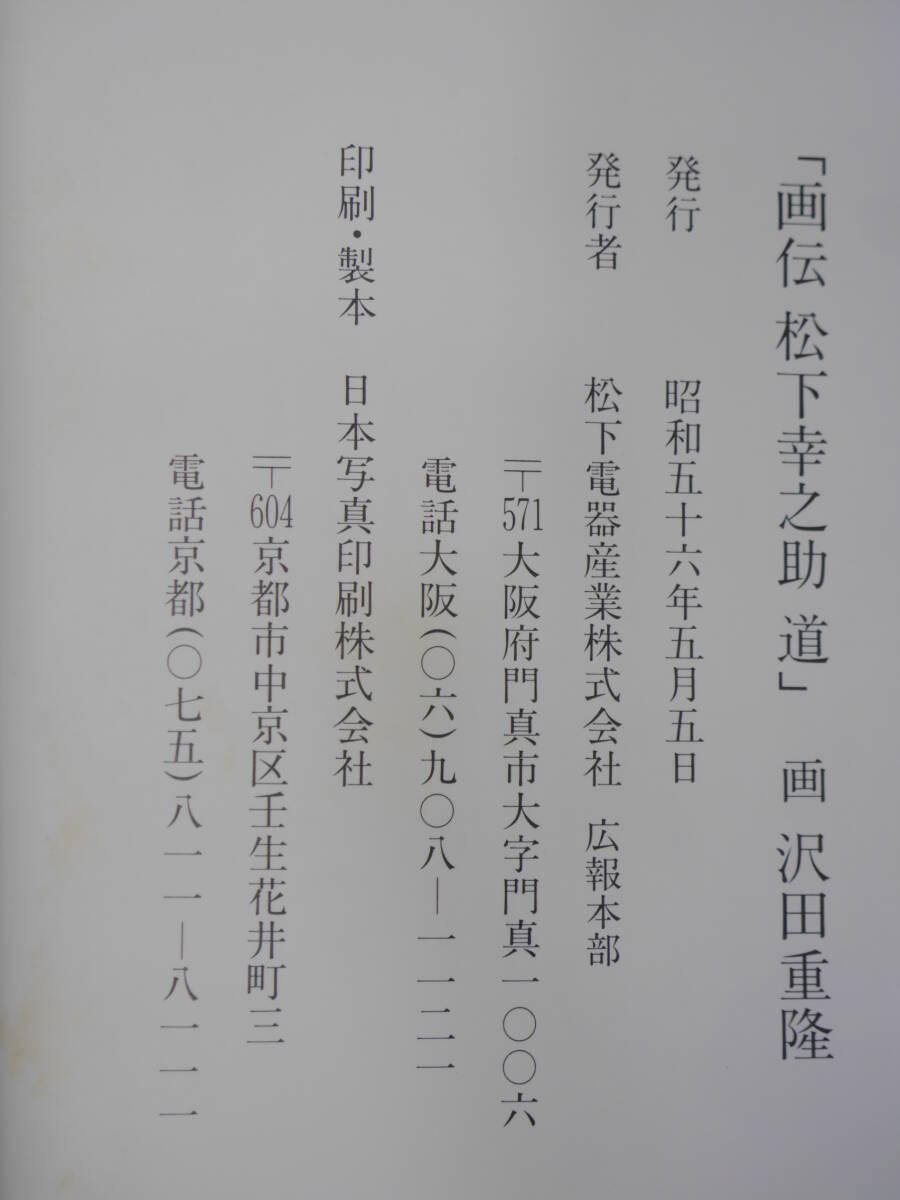 「画伝 松下幸之助 道」 画 沢田重隆
発行 昭和五十六年五月五日
発行者 松下電器産業株式会社 広報本部
〒571大阪府門真市大字門真一〇〇六
電話大阪(〇六)九〇八―一一二一
印刷・製本 日本写真印刷株式会社
〒604京都市中京区壬生花井町三
電話京都(〇七五)八一一―八一一一